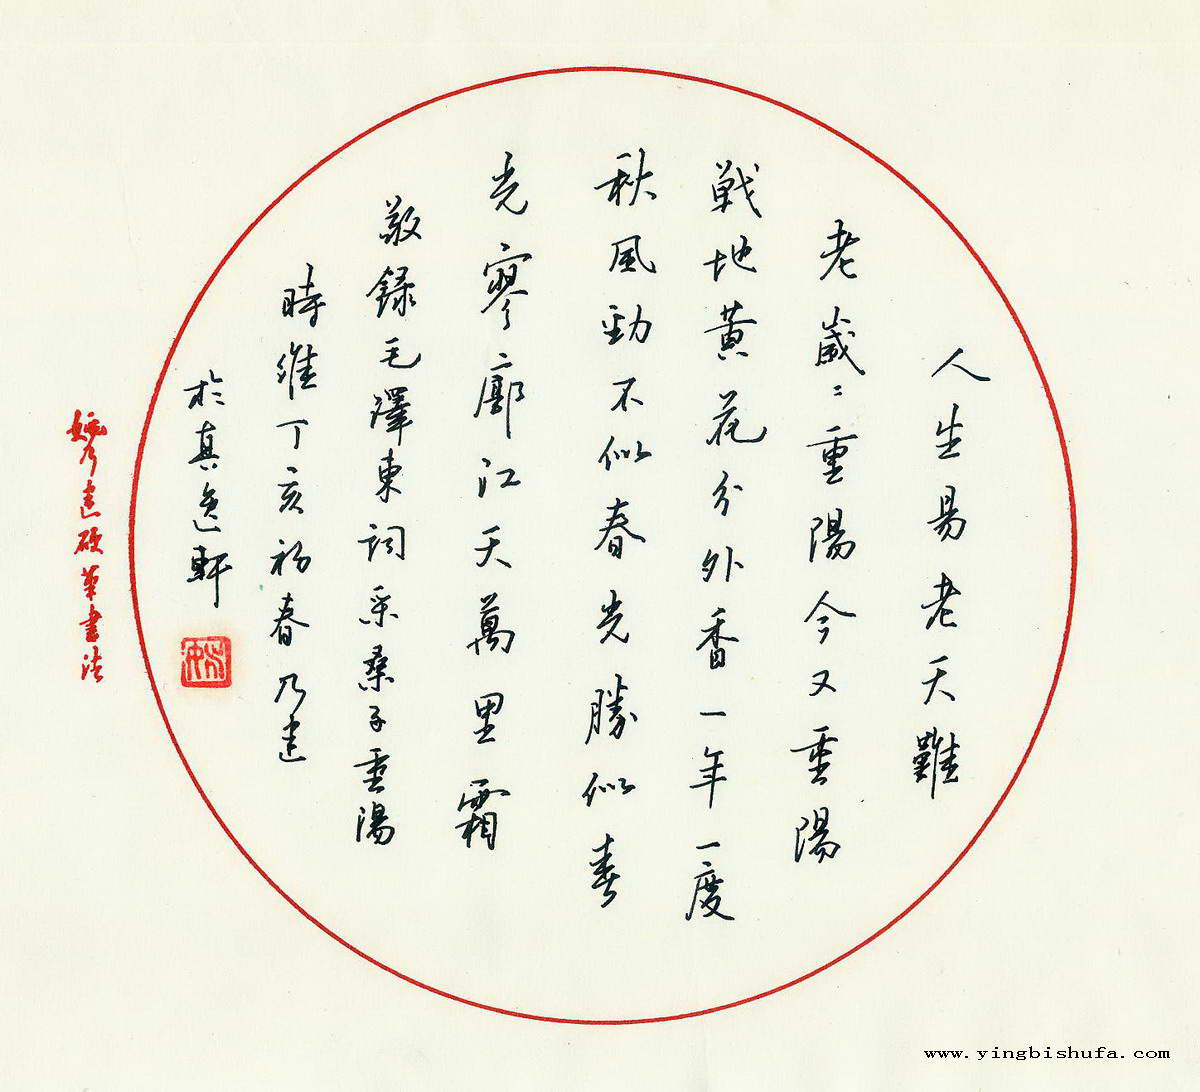 人生易老天難
老歲〻重陽今又重陽
戰地黃花分外香一年一度
秋風勁不似春光勝似春
光寥廓江天萬里霜
敬録毛澤東詞采桑子重陽
時維丁亥初春乃建
於真逸軒
乃建硬筆書法
www.yingbishufa.com